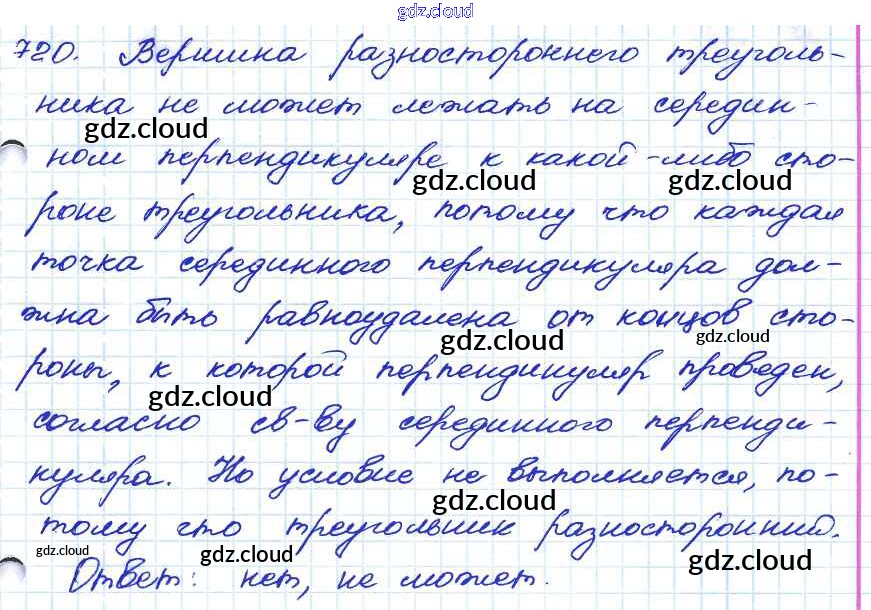 gdz.cloud
720. Вершина разностороннего треуголь-
ника не может лежать на середин-
gdz.cloud
ном перпендикуляре к какой-либо сто-
gdz.cloud gdz.cloud
роне треугольника, потому что каждая
точка серединного перпендикуляра дол-
жна быть равноудалена от концов сто-
gdz.cloud gdz.cloud
роны, к которой перпендикуляр проведен,
gdz.cloud
согласно св-ву серединного перпенди-
куляра. Но условие не выполняется, по-
gdz.cloud
тому что треугольник разносторонний.
gdz.cloud gdz.cloud gdz.cloud
Ответ: нет, не может.